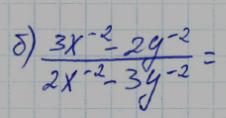 б) \frac{3x^{-2} - 2y^{-2}}{2x^{-2} - 3y^{-2}} =